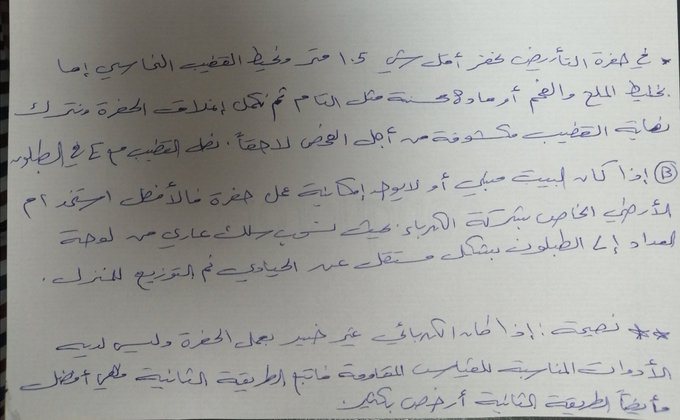 * في حفرة التأريض نحفر أقل شي 1.5 متر ونحيط القضيب النحاسي إما
بخليط الملح والفحم أو مادة محسنة مثل التام ثم نكمل إغلاق الحفرة ونترك
نهاية القضيب مكشوفة من أجل الفحص لاحقاً. نصل القضيب مع E في الطبلون
B إذا كان البيت مبني أو لا يوجد إمكانية عمل حفرة فالأفضل استخدام
الأرضي الخاص بشركة الكهرباء. بحيث نسحب سلك عاري من لوحة
العداد إلى الطبلون بشكل مستقل عن الحيادي ثم التوزيع للمنزل.
** نصيحة: إذا كان الكهربائي غير خبير بعمل الحفرة وليس لديه
الأدوات المناسبة لقياس المقاومة فاتبع الطريقة الثانية فهي أفضل
وأيضاً الطريقة الثانية أرخص بكثير.